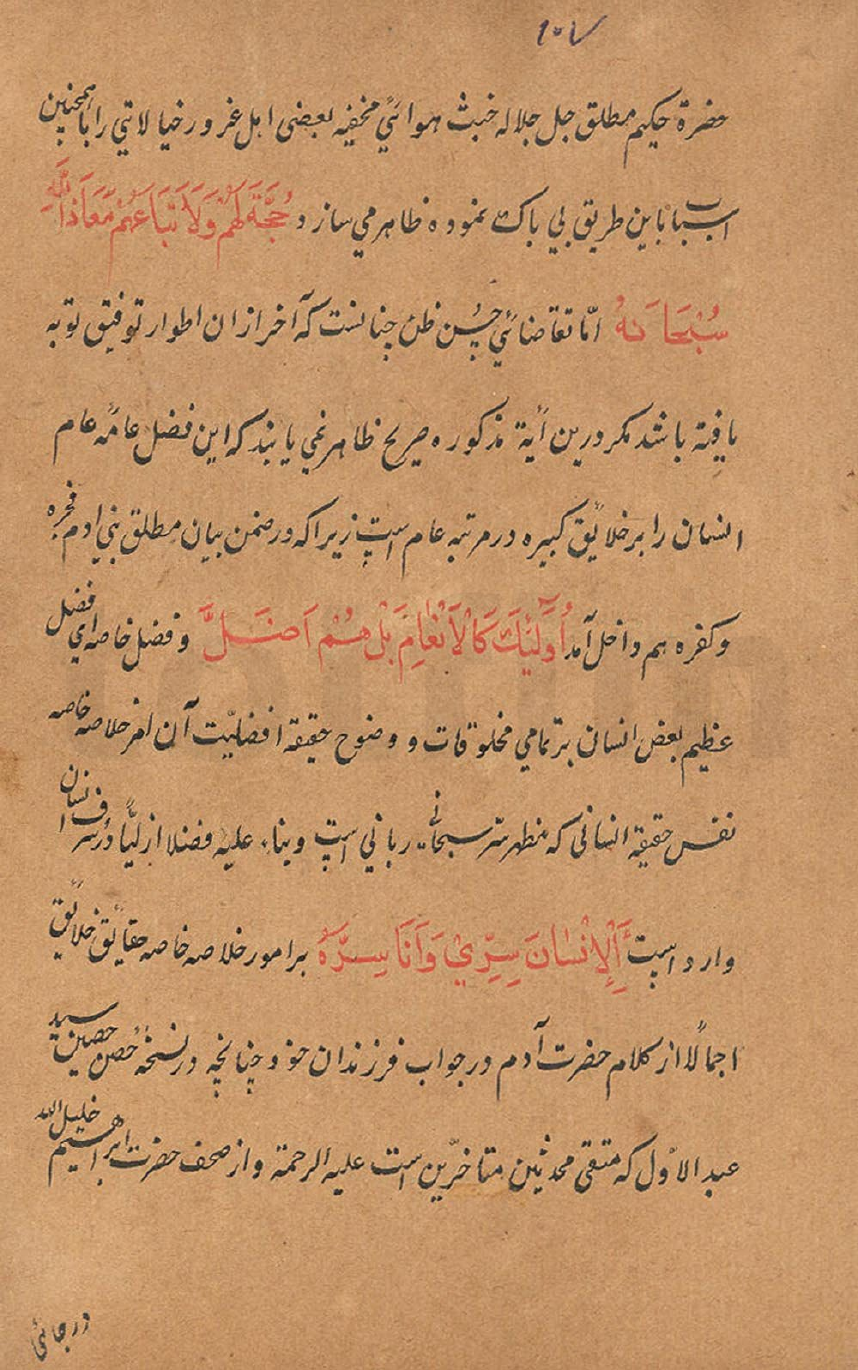 ۱۰۷
حضرة حکیم مطلق جل جلاله خبث هوائی مخفیه بعضی اهل غرور خیالاتی را باهمچنین
اسباب باین طریق بی باک نموده ظاهر می سازد حُجَّةً لَهُمْ وَلَاتبَاعِهُمْ مَعَاذَ اللَّهِ
سُبْحَانَهُ امّا تقاضائی حُسن ظن چنانست که آخر ازان اطوار توفیق توبه
یافته باشد مکر درین آیة مذکوره صریح ظاهر نمی یابند که این فضل عامّه عام
انسان را بر خلایق کبیره در مرتبه عام است زیرا که در ضمن بیان مطلق بنی ادم فجره
و کفره هم داخل آمد اُولَٰئِكَ كَالْاَنْعَامِ بَلْ هُمْ اَضَلُّ و فضل خاصه ای افضل
عظیم بعض انسان بر تمامی مخلوقات و وضوح حقیقة افضلیّت آن امر خلاصه خاصه
نفس حقیقة انسانی که مظهر سر سبحانی ربانی است وبناء علیه فضلا ازلیًّا در شرف انسان
وارد است اَلْاِنْسَانَ سِرِّيْ وَاَنَا سِرُّهُ بر امور خلاصه خاصه حقایق خلایق
اجمالًا از کلام حضرت آدم در جواب فرزندان خود چنانچه در نسخهٔ حصن حصین سید
عبد الاوّل که متقی محدثین متاخّرین است علیه الرحمة و از صحف حضرت ابراهیم خلیل الله
در جائی